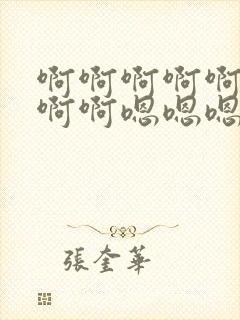 啊啊啊啊啊
啊啊嗯嗯嗯
張奎華